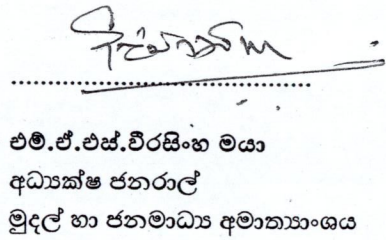 එම්.ඒ.එස්.වීරසිංහ මයා
අධ්‍යක්ෂ ජනරාල්
මුදල් හා ජනමාධ්‍ය අමාත්‍යාංශය